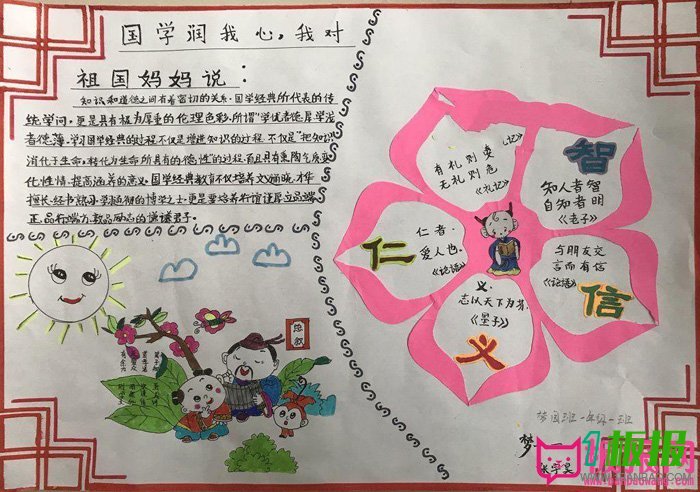 国学润我心，我对
祖国妈妈说：
知识和道德之间有着密切的关系。国学经典所代表的传
统学问，更是具有极为厚重的伦理色彩，所谓“学优者德厚，学浅
者德薄。学习国学经典的过程不仅是增进知识的过程，不仅是“把知识
消化于生命，转化为生命所具有的“德性”的过程，而且具有熏陶气质变
化性情、提高涵养的意义。国学经典教育不仅培养文
正、品行端方、敦品励志的谦谦君子。
有礼则安
无礼则危
《礼记》
智
知人者智
自知者明
《老子》
仁
仁者，
爱人也。
《论语》
与朋友交
言而有信
《论语》
信
义，
志以天下为芬。
《墨子》
义
梦园班一年级一班
梦
1板报